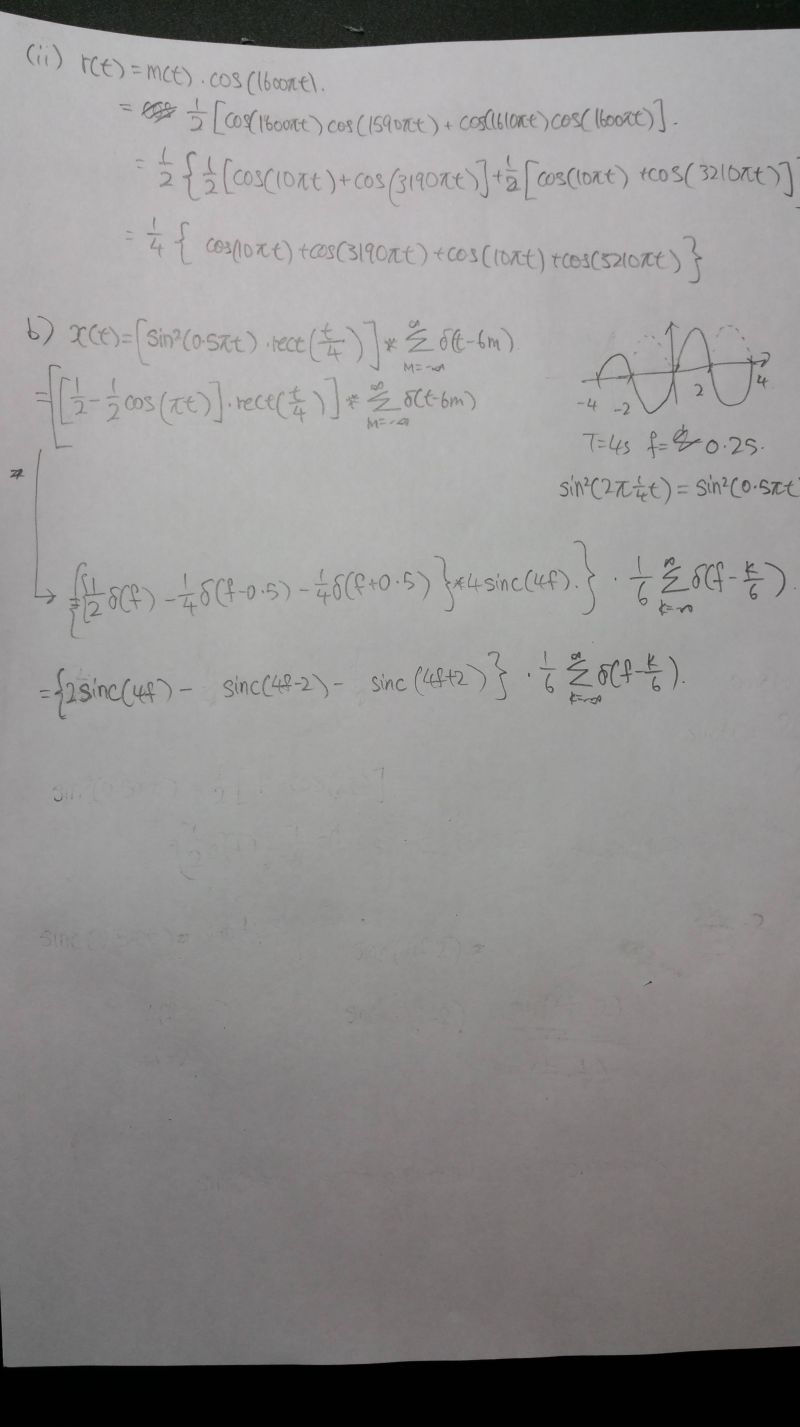 (ii) r(t) = m(t) . cos(1600πt).
= 1/2 [cos(1600πt) cos(1590πt) + cos(1610πt) cos(1600πt)].
= 1/2 { 1/2 [cos(10πt) + cos(3190πt)] + 1/2 [cos(10πt) + cos(3210πt)]
= 1/4 { cos(10πt) + cos(3190πt) + cos(10πt) + cos(5210πt) }
b) x(t) = [sin²(0.5πt) . rect(t/4)] * ∞ Σ M=-∞ δ(t-6m)
= [[1/2 - 1/2 cos(πt)] . rect(t/4)] * ∞ Σ M=-∞ δ(t-6m)
-4 -2 2 4
T=4s f= 0.25.
sin²(2π 1/4 t) = sin²(0.5πt
= {{1/2 δ(f) - 1/4 δ(f-0.5) - 1/4 δ(f+0.5)} * 4 sinc(4f).} . 1/6 ∞ Σ k=-∞ δ(f - k/6).
= {2sinc(4f) - sinc(4f-2) - sinc(4f+2)} . 1/6 ∞ Σ k=-∞ δ(f - k/6).